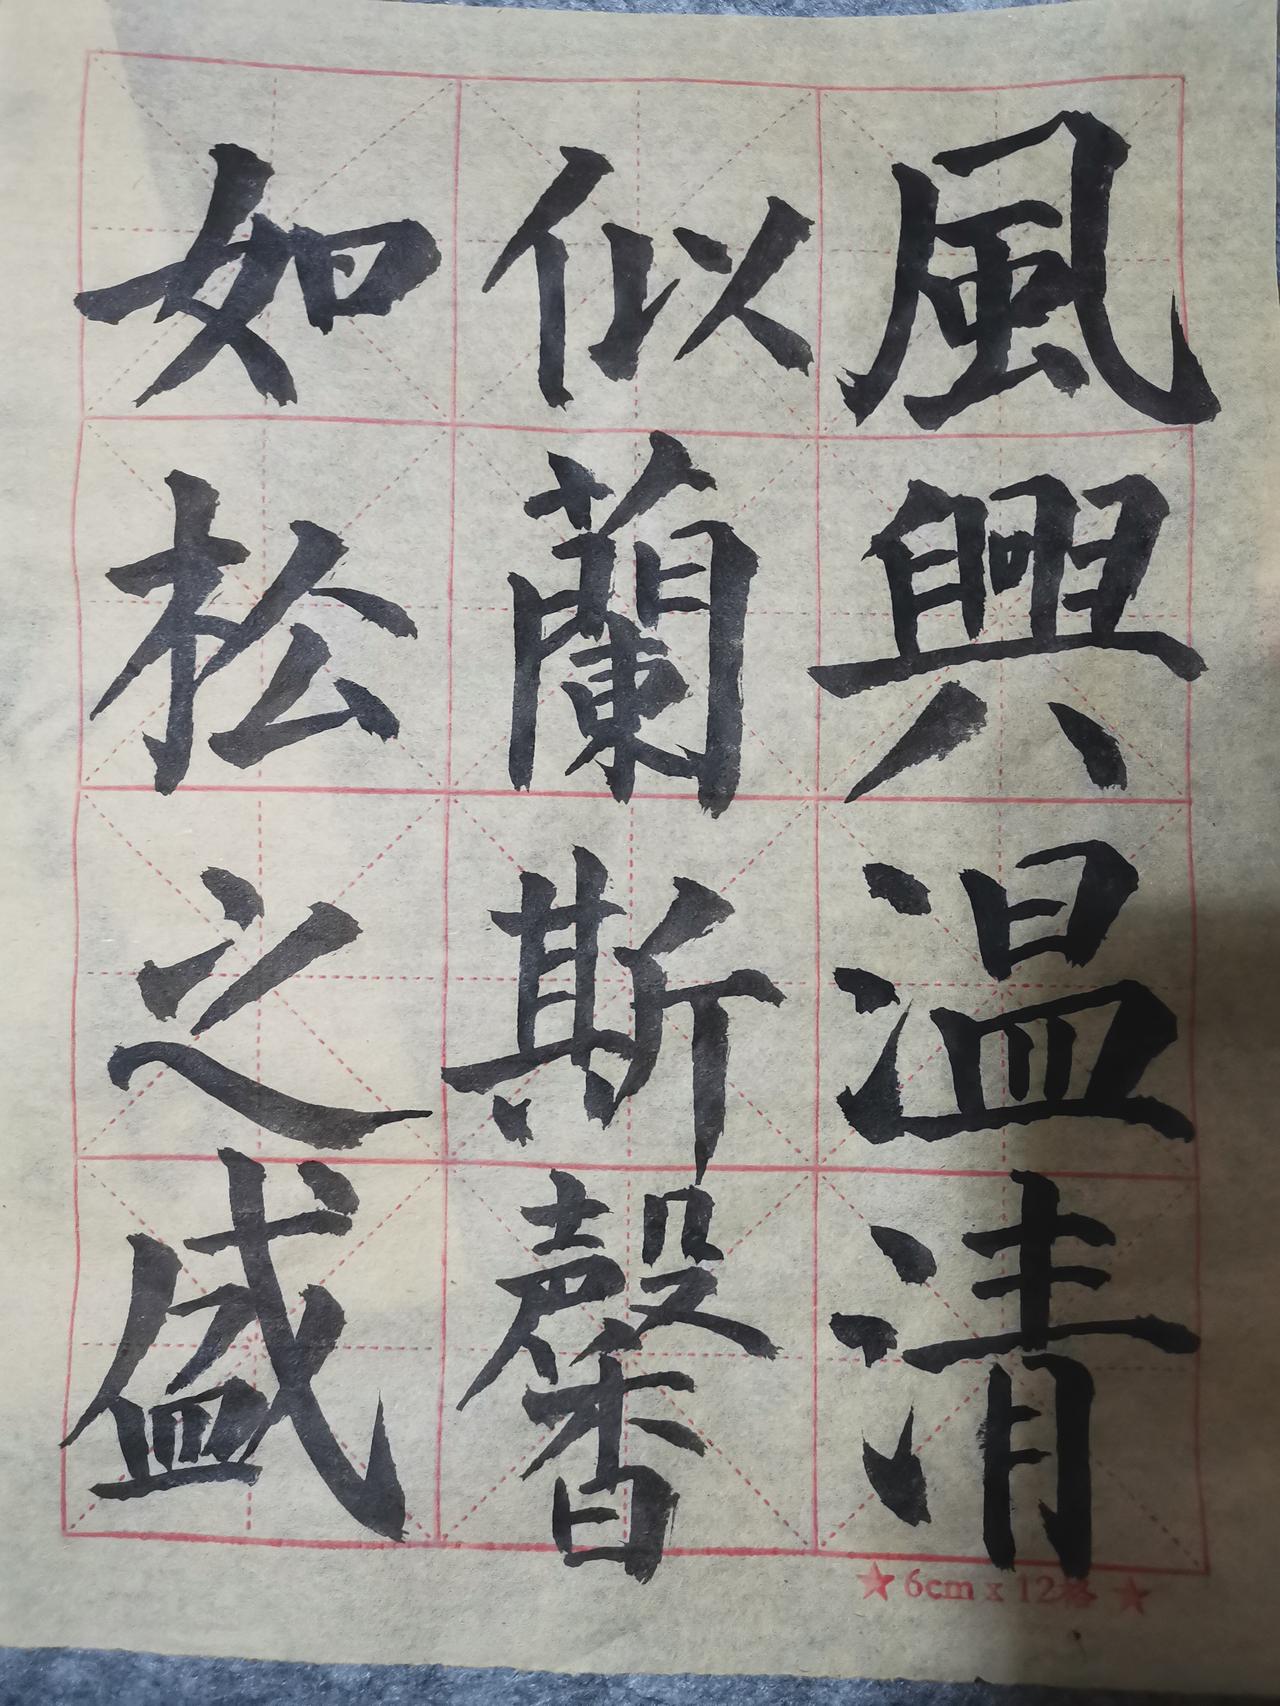 風興温清
似蘭斯馨
如松之盛
★6cm x 12格★